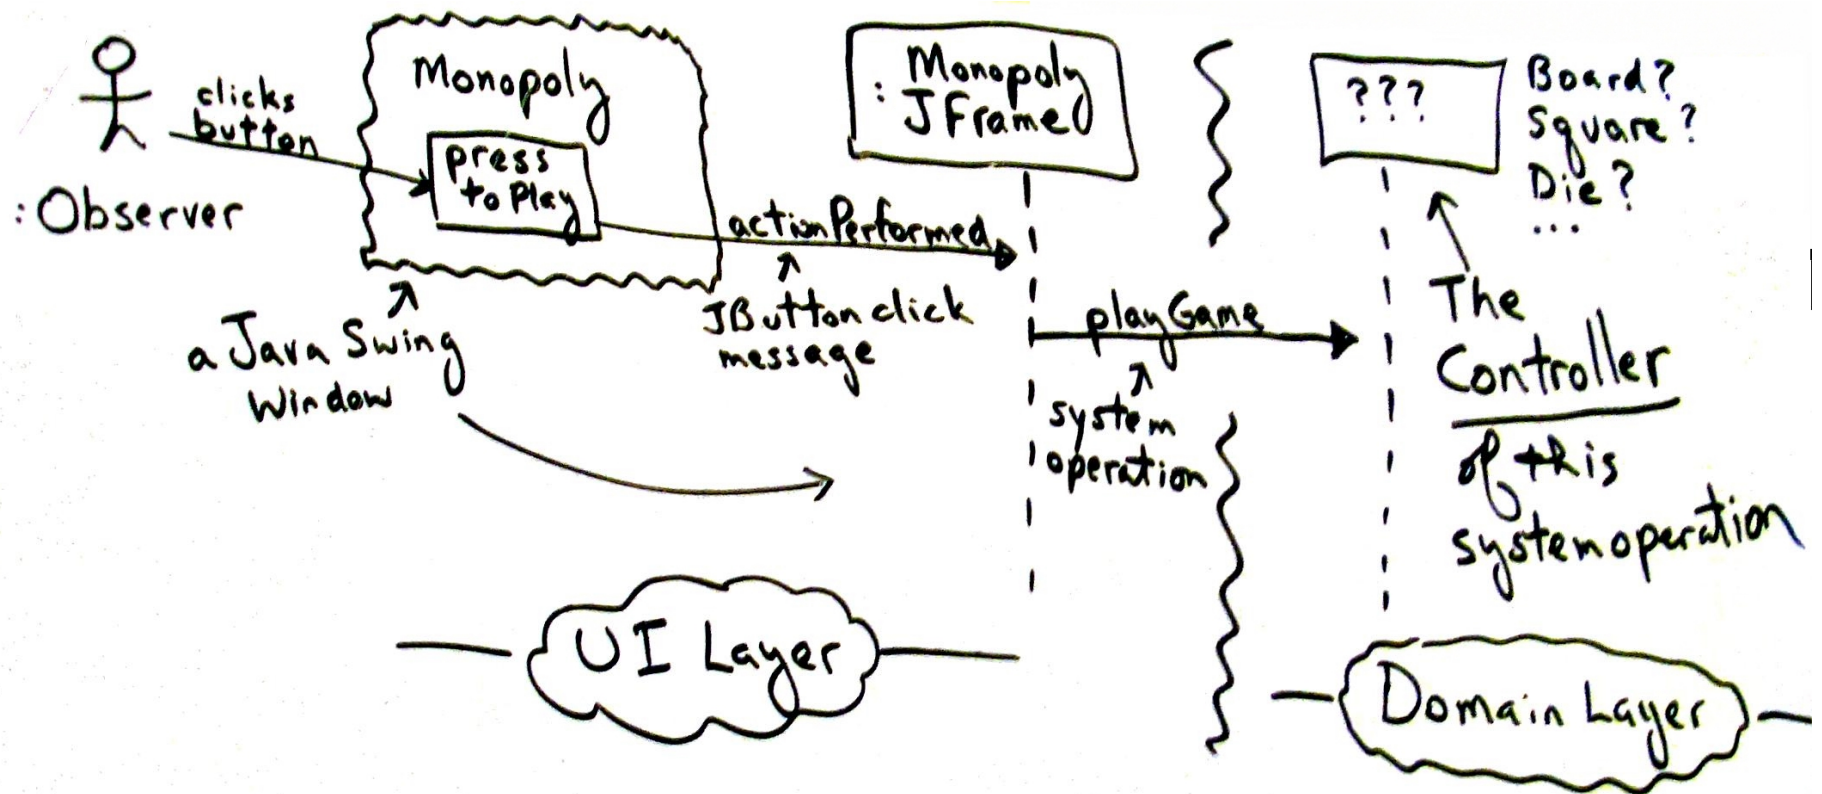 clicks
button
: Observer
Monopoly
press
to Play
a Java Swing
Window
actionPerformed
JButton click
message
: Monopoly
JFrame
playGame
system
operation
???
Board?
Square?
Die?
...
The
Controller
of this
system operation
UI Layer
Domain Layer